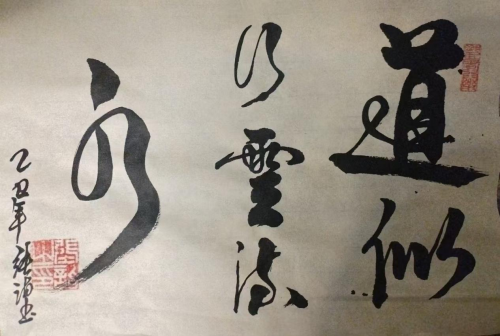 道似
行雲流
水
乙丑年